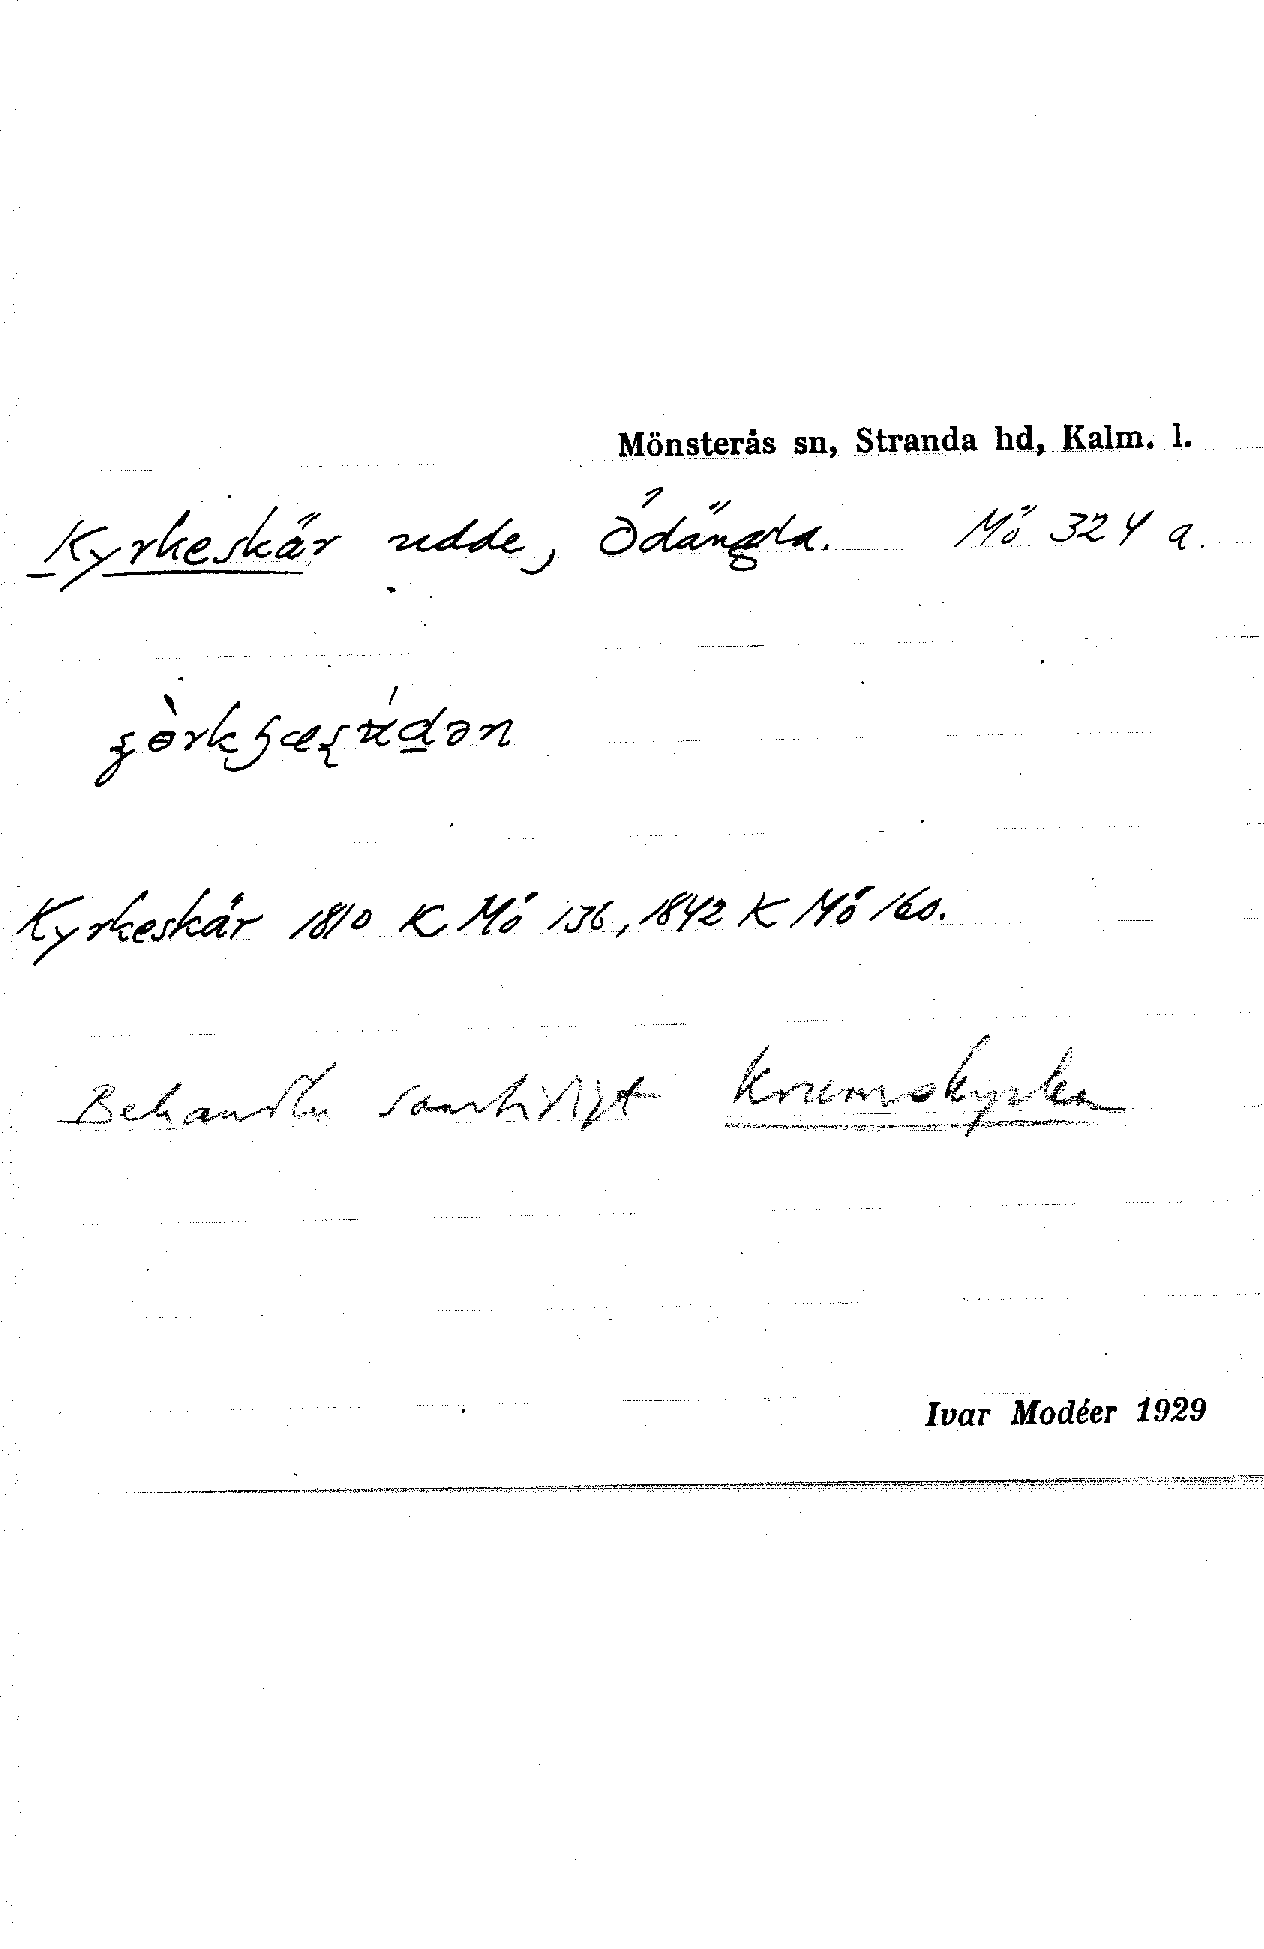 Mönsterås sn, Stranda hd, Kalm. l.
Kyrkeskär udde, Ödängla. Mö 324 a.
Kyrkeskär 1810 K Mö 136, 1842 K Mö 160.
Behandla samtidigt Krumskyrka
Ivar Modéer 1929